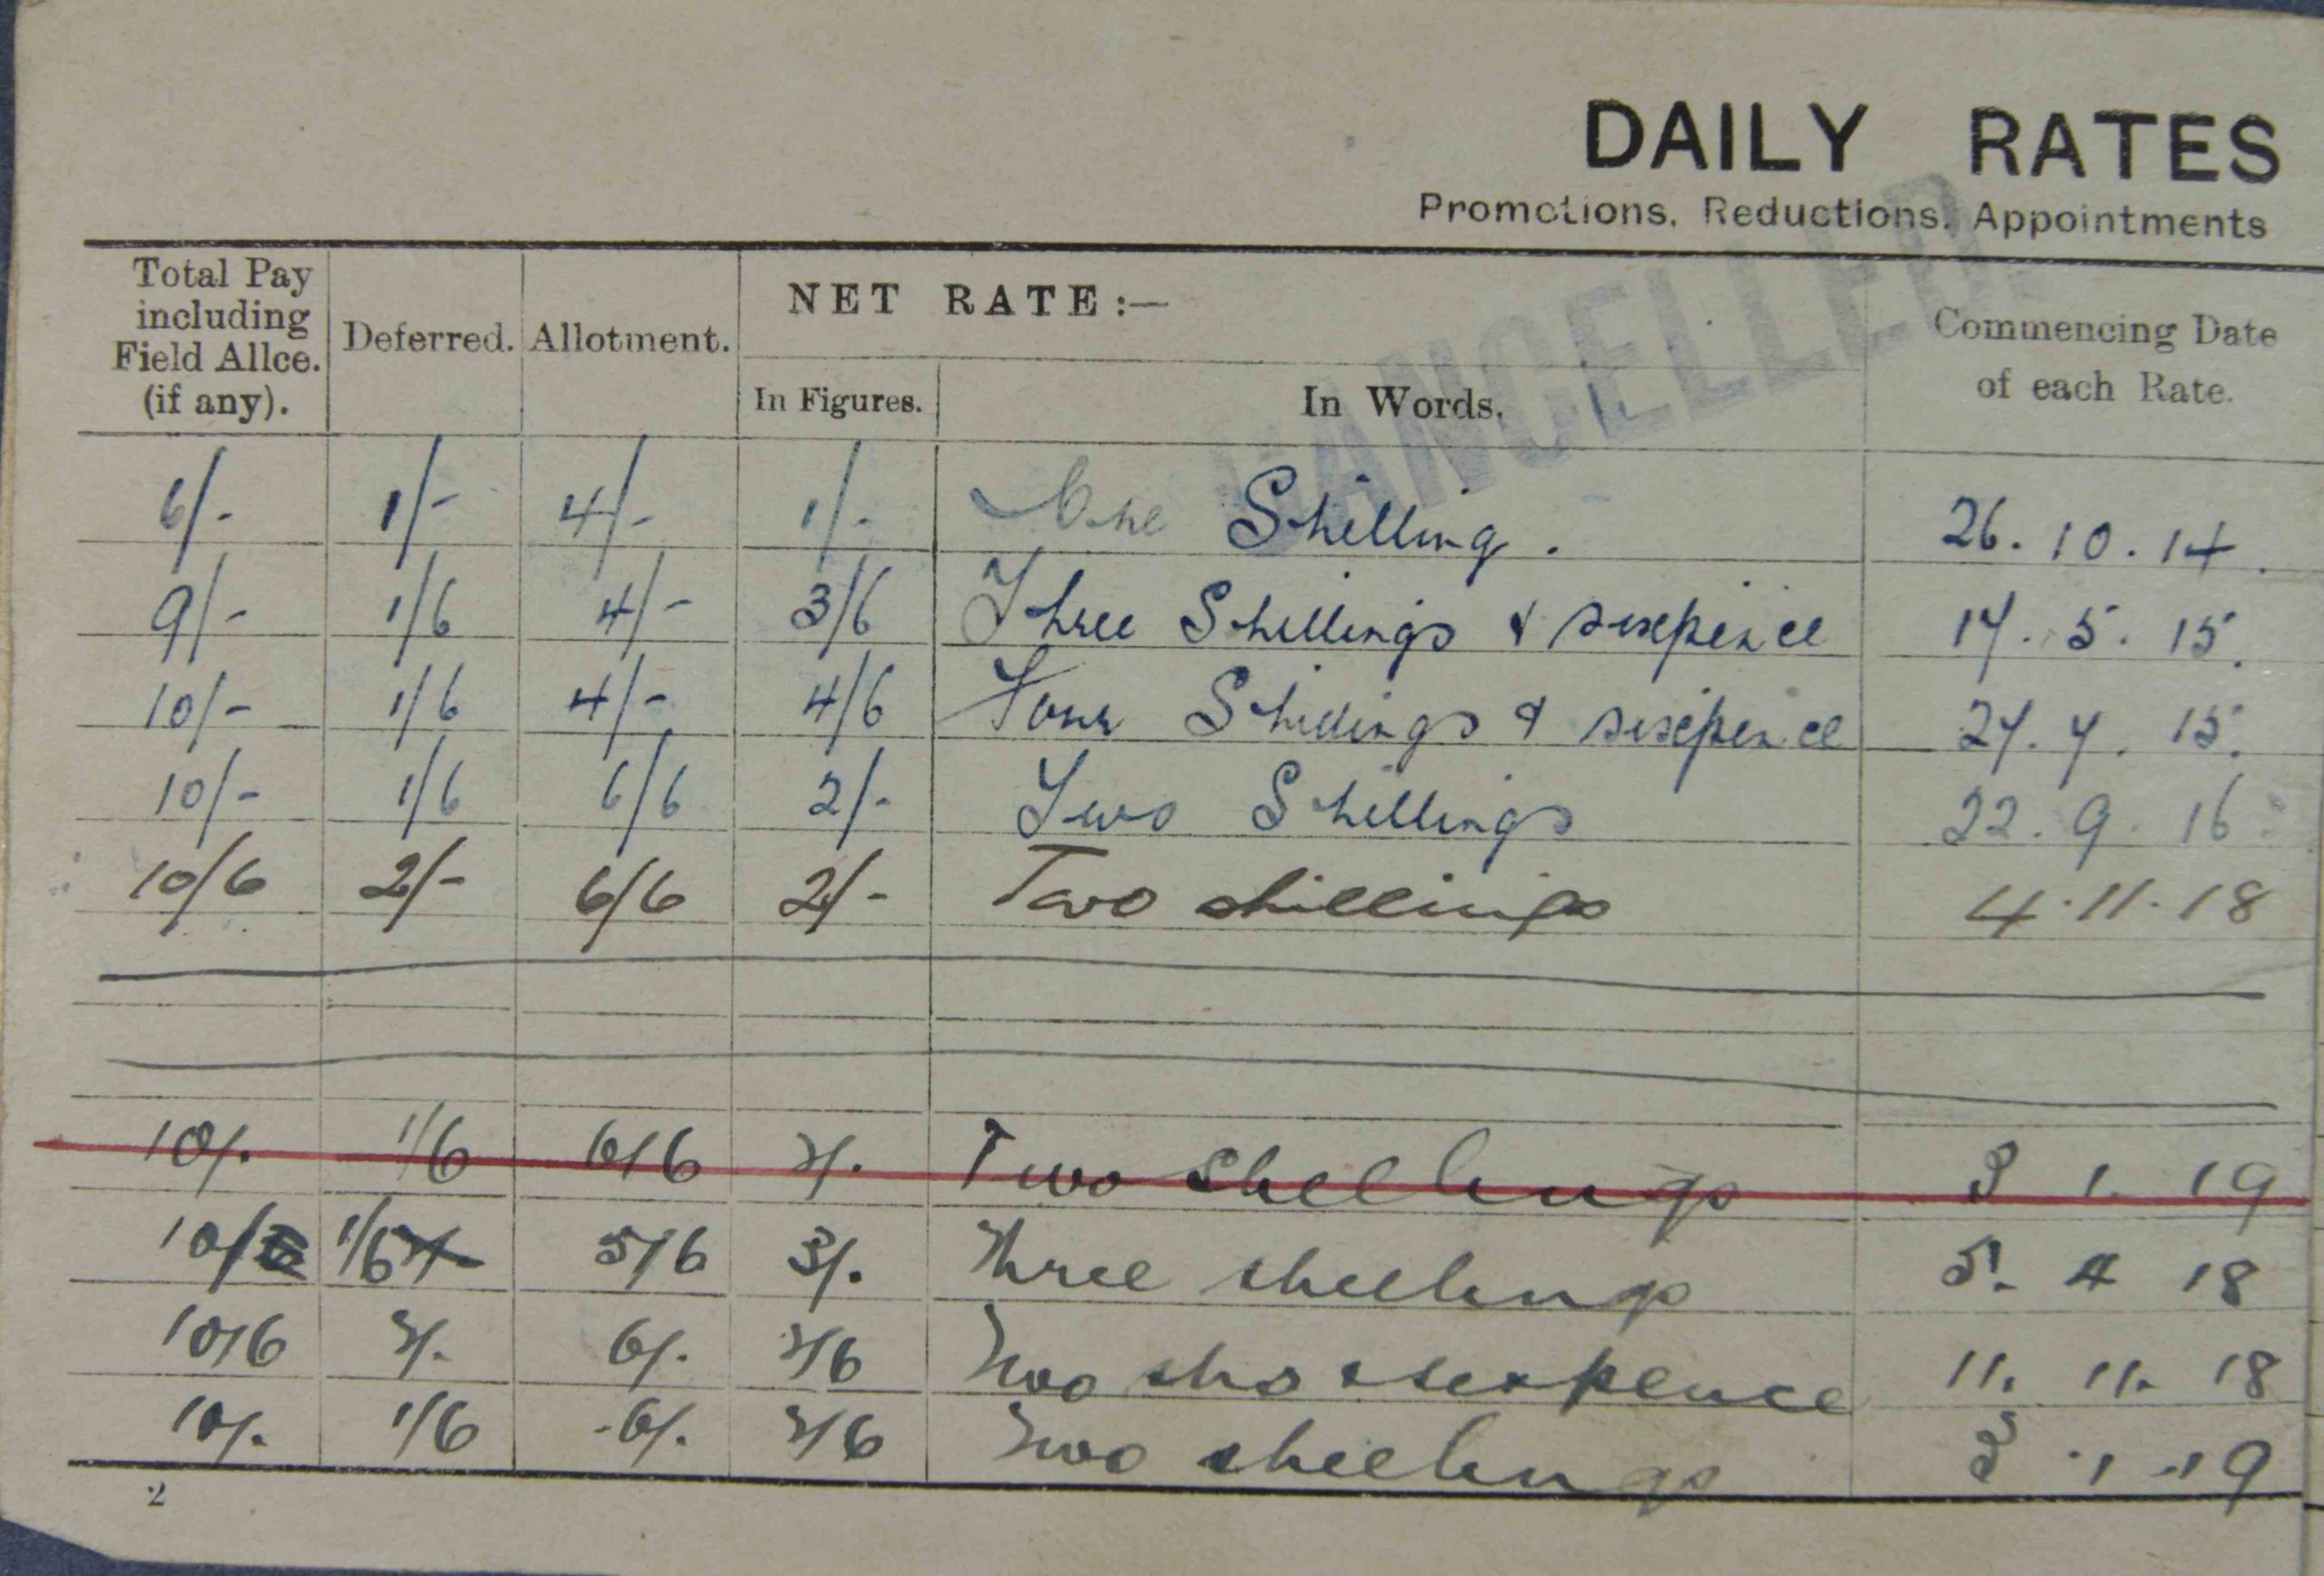 DAILY RATES
Promotions, Reductions, Appointments
CANCELLED.
Total Pay including Field Allce. (if any). Deferred. Allotment. NET RATE:— In Figures. In Words. Commencing Date of each Rate.
6/- 1/- 4/- 1/- One Shilling. 26.10.14.
9/- 1/6 4/- 3/6 Three Shillings & sixpence 17.5.15.
10/- 1/6 4/- 4/6 Four Shillings & sixpence 27.7.15.
10/- 1/6 6/6 2/- Two Shillings 22.9.16
10/6 2/- 6/6 2/- Two shillings 4.11.18
10/. 1/6 6/6 2/. Two Shillings 3 1. 19
10/ 1/6 5/6 3/. Three shillings 5. 4 18
10/6 2/. 6/. 2/6 Two shs & sixpence 11. 11. 18
10/. 1/6 6/. 2/6 Two shillings 3 .1.19
2